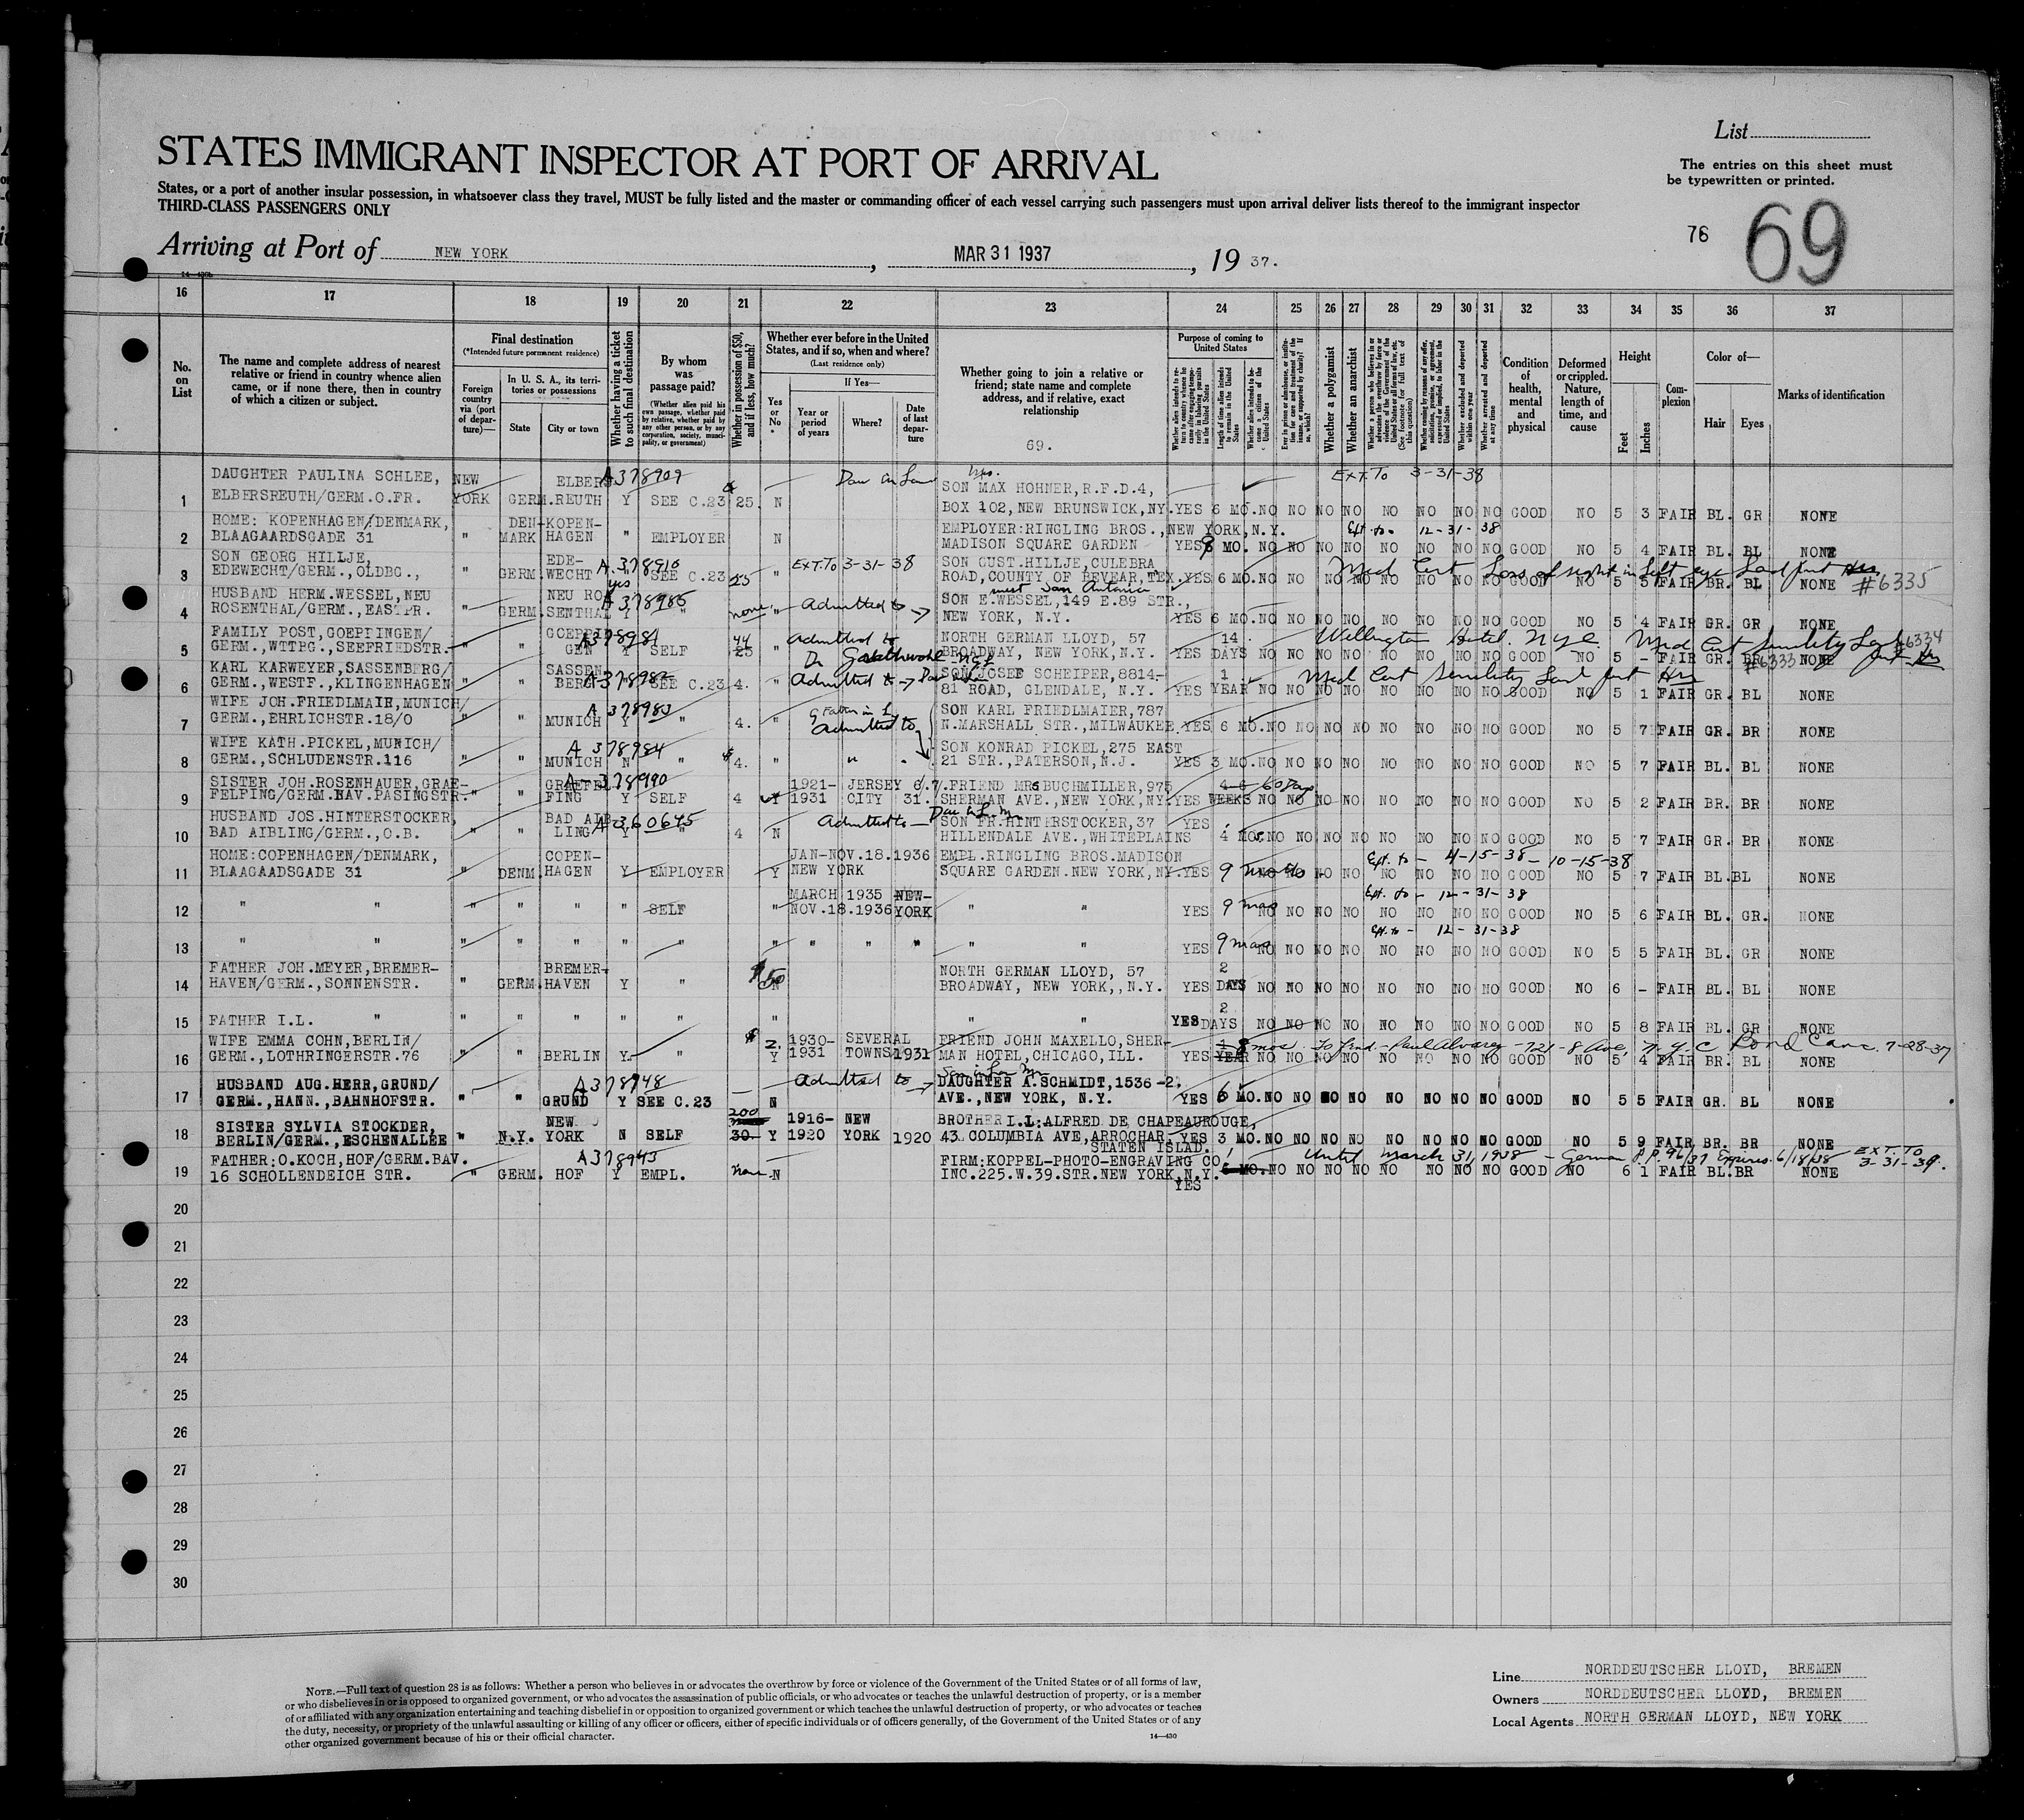 List
STATES IMMIGRANT INSPECTOR AT PORT OF ARRIVAL
The entries on this sheet must
be typewritten or printed.
States, or a port of another insular possession, in whatsoever class they travel, MUST be fully listed and the master or commanding officer of each vessel carrying such passengers must upon arrival deliver lists thereof to the immigrant inspector
THIRD-CLASS PASSENGERS ONLY
76 69
Arriving at Port of NEW YORK, MAR 31 1937, 19 37.
16 17 18 19 20 21 22 23 24 25 26 27 28 29 30 31 32 33 34 35 36 37
No. on List
The name and complete address of nearest relative or friend in country whence alien came, or if none there, then in country of which a citizen or subject.
Final destination
(*Intended future permanent residence)
Foreign country via (port of departure)—
In U. S. A., its territories or possessions
State
City or town
Whether having a ticket to such final destination
By whom was passage paid?
(Whether alien paid his own passage, whether paid by relative, whether paid by any other person, or by any corporation, society, municipality, or government)
Whether in possession of $50, and if less, how much?
Whether ever before in the United States, and if so, when and where?
(Last residence only)
Yes or No
If Yes—
Year or period of years
Where?
Date of last departure
Whether going to join a relative or friend; state name and complete address, and if relative, exact relationship
69.
Purpose of coming to United States
Whether a polygamist
Whether an anarchist
Condition of health, mental and physical
Deformed or crippled. Nature, length of time, and cause
Height
Feet
Inches
Complexion
Color of—
Hair
Eyes
Marks of identification
DAUGHTER PAULINA SCHLEE, NEW ELBERS A378909 Mrs. EXT. TO 3-31-38
1 ELBERSREUTH/GERM.O.FR. YORK GERM.REUTH Y SEE C.23 25. N SON MAX HOHNER,R.F.D.4,
BOX 102,NEW BRUNSWICK,NY. YES 6 MO. NO NO NO NO NO NO NO NO GOOD NO 5 3 FAIR BL. GR NONE
HOME: KOPENHAGEN/DENMARK, DEN- KOPEN- EMPLOYER:RINGLING BROS.,NEW YORK,N.Y. Ext. to - 12-31-38
2 BLAAGAARDSGADE 31 " MARK HAGEN " EMPLOYER N MADISON SQUARE GARDEN YES 9 MO. NO NO NO NO NO NO NO NO GOOD NO 5 4 FAIR BL. BL NONE
SON GEORG HILLJE, EDE- A.378910 EXT.TO 3-31-38 SON GUST.HILLJE,CULEBRA
3 EDEWECHT/GERM.,OLDBG., " GERM. WECHT yes SEE C.23 25 " ROAD,COUNTY OF BEVEAR,TEX. YES 6 MO. NO NO NO NO NO NO NO NO GOOD NO 5 5 FAIR BR. BL NONE #6335
Med Cert Loss of sight in left eye
west San Antonio
HUSBAND HERM.WESSEL,NEU NEU RO A 378985
4 ROSENTHAL/GERM.,EASTPR. " GERM. SENTHAL Y " none " Admitted to → SON E.WESSEL,149 E.89 STR.,
NEW YORK, N.Y. YES 6 MO. NO NO NO NO NO NO NO NO GOOD NO 5 4 FAIR GR. GR NONE
FAMILY POST,GOEPPINGEN/ A378981 44 admitted to NORTH GERMAN LLOYD, 57 14 Wellington Hotel. NYC. Med Cert Senility #6334
5 GERM.,WTTBG.,SEEFRIEDSTR. " " GEN Y SELF 25 BROADWAY, NEW YORK,N.Y. YES DAYS NO NO NO NO NO NO NO NO GOOD NO 5 - FAIR GR. BR NONE
KARL KARWEYER,SASSENBERG/ SASSEN A378982 SON JOSEF SCHEIPER,8814- 1 Med Cert Senility #6333
6 GERM.,WESTF.,KLINGENHAGEN " " BERG SEE C.23 4. " admitted to → 81 ROAD, GLENDALE, N.Y. YES YEAR NO NO NO NO NO NO NO NO GOOD NO 5 1 FAIR GR. BL NONE
WIFE JOH.FRIEDLMAIR,MUNICH/ A 378983 SON KARL FRIEDLMAIER,787
7 GERM.,EHRLICHSTR.18/0 " " MUNICH Y " 4. " admitted to N.MARSHALL STR.,MILWAUKEE. YES 6 MO. NO NO NO NO NO NO NO NO GOOD NO 5 7 FAIR GR. BR NONE
WIFE KATH.PICKEL,MUNICH/ A 378984 SON KONRAD PICKEL,275 EAST
8 GERM.,SCHLUDENSTR.116 " " MUNICH N " $4. " " 21 STR.,PATERSON,N.J. YES 3 MO. NO NO NO NO NO NO NO NO GOOD NO 5 7 FAIR BL. BL NONE
SISTER JOH.ROSENHAUER,GRAE- GRAEFEL A-378990 1921- JERSEY FRIEND MRS BUCHMILLER,975 60 Days
9 FELFING/GERM.BAV.PASINGSTR. " " FING Y SELF 4 Y 1931 CITY 31. SHERMAN AVE.,NEW YORK,NY. YES WEEKS NO NO NO NO NO NO NO NO GOOD NO 5 2 FAIR BR. BR NONE
HUSBAND JOS.HINTERSTOCKER, BAD AIB- A360645 Admitted to - SON FR.HINTERSTOCKER,37 YES
10 BAD AIBLING/GERM.,O.B. " " LING Y " 4 N HILLENDALE AVE.,WHITEPLAINS 4 MOS. NO NO NO NO NO NO NO NO GOOD NO 5 7 FAIR GR. BR NONE
HOME:COPENHAGEN/DENMARK, COPEN- JAN-NOV.18.1936 EMPL.RINGLING BROS.MADISON Ext. to - 4-15-38 - 10-15-38
11 BLAAGAADSGADE 31 " DENM. HAGEN Y EMPLOYER Y NEW YORK SQUARE GARDEN.NEW YORK,NY. YES 9 months NO NO NO NO NO NO NO GOOD NO 5 7 FAIR BL. BL NONE
MARCH 1935 NEW- Ext. to - 12-31-38
12 " " " " " " SELF " NOV.18.1936 YORK " " YES 9 mos NO NO NO NO NO NO NO NO GOOD NO 5 6 FAIR BL. GR. NONE
Ext. to - 12-31-38
13 " " " " " " " " " " " " YES 9 mos NO NO NO NO NO NO NO NO GOOD NO 5 5 FAIR BL. GR NONE
FATHER JOH.MEYER,BREMER- BREMER- $50 NORTH GERMAN LLOYD, 57 2
14 HAVEN/GERM.,SONNENSTR. " GERM. HAVEN Y " N BROADWAY, NEW YORK,,N.Y. YES DAYS NO NO NO NO NO NO NO NO GOOD NO 6 - FAIR BL. BL NONE
2
15 FATHER I.L. " " " " " " " " " YES DAYS NO NO NO NO NO NO NO NO GOOD NO 5 8 FAIR BL. GR NONE
WIFE EMMA COHN,BERLIN/ $ 2. 1930- SEVERAL FRIEND JOHN MAXELLO,SHER- 8 mos. To friend - Paul Alvarez - 721-8 Ave, N.Y.C Bond Canc. 7-28-37
16 GERM.,LOTHRINGERSTR.76 " " BERLIN Y " Y 1931 TOWNS 1931 MAN HOTEL,CHICAGO,ILL. YES YEAR NO NO NO NO NO NO NO NO GOOD NO 5 4 FAIR BR. BL NONE
HUSBAND AUG.HERR,GRUND/ A378948 Admitted to → DAUGHTER A.SCHMIDT,1536-2.
17 GERM.,HANN.,BAHNHOFSTR. " " GRUND Y SEE C.23 N AVE.,NEW YORK, N.Y. YES 6 MO. NO NO NO NO NO NO NO NO GOOD NO 5 5 FAIR GR. BL NONE
SISTER SYLVIA STOCKDER, NEW 200 1916- NEW BROTHER I.L:ALFRED DE CHAPEAUROUGE,
18 BERLIN/GERM.,ESCHENALLEE " N.Y. YORK N SELF 30. Y 1920 YORK 1920 43 COLUMBIA AVE,ARROCHAR, YES 3 MO. NO NO NO NO NO NO NO NO GOOD NO 5 9 FAIR BR. BR NONE
STATEN ISLAD.
FATHER:O.KOCH,HOF/GERM.BAV. A378943 FIRM:KOPPEL-PHOTO-ENGRAVING CO. Until March 31, 1938 - German P.P. 96/37 Expires 6/18/38 EXT. TO 3-31-39.
19 16 SCHOLLENDEICH STR. " GERM. HOF Y EMPL. none N INC.225.W.39.STR.NEW YORK,N.Y. 6 MO. NO NO NO NO NO NO NO NO GOOD NO 6 1 FAIR BL. BR NONE
YES
20
21
22
23
24
25
26
27
28
29
30
NOTE.—Full text of question 28 is as follows: Whether a person who believes in or advocates the overthrow by force or violence of the Government of the United States or of all forms of law,
or who disbelieves in or is opposed to organized government, or who advocates the assassination of public officials, or who advocates or teaches the unlawful destruction of property, or is a member
of or affiliated with any organization entertaining and teaching disbelief in or opposition to organized government or which teaches the unlawful destruction of property, or who advocates or teaches
the duty, necessity, or propriety of the unlawful assaulting or killing of any officer or officers, either of specific individuals or of officers generally, of the Government of the United States or of any
other organized government because of his or their official character.
14—430
Line NORDDEUTSCHER LLOYD, BREMEN
Owners NORDDEUTSCHER LLOYD, BREMEN
Local Agents NORTH GERMAN LLOYD, NEW YORK